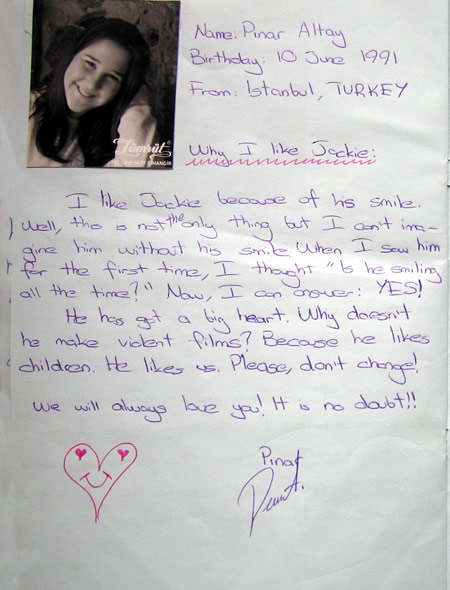 Name: Pınar Altay
Birthday: 10 June 1991
From: İstanbul, TURKEY
Zümrüt
Why I like Jackie:
I like Jackie because of his smile.
Well, this is not the only thing but I can't ima-
gine him without his smile. When I saw him
for the first time, I thought "Is he smiling
all the time?" Now, I can answer: YES!
He has got a big heart. Why doesn't
he make violent films? Because he likes
children. He likes us. Please, don't change!
We will always love you! It is no doubt!!
Pınar